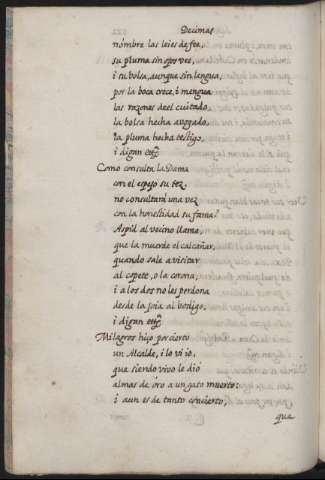 Decimas
nombre las leies de fee,
su pluma sin opor ves,
i su bolsa, aunque sin lengua,
por la boca crece, i mengua
las razones de el cuitado
la bolsa hecha avogado,
la pluma hecha testigo,
i digan ettᵃ
Como consulta la Dama
con el espejo su tez,
no consultarà una vez
con la honestidad su fama?
Aspid al vecino llama,
que la muerde el calcañar,
quando sale a visitar
al copete, o la corona,
i a los dos no les perdona
desde la joia al bodigo,
i digan ettᵃ
Milagros hizo por cierto
un Alcalde, i lo vi io,
que siendo vivo le diò
almas de oro a un gato muerto:
i aun es de tanto concierto,
que